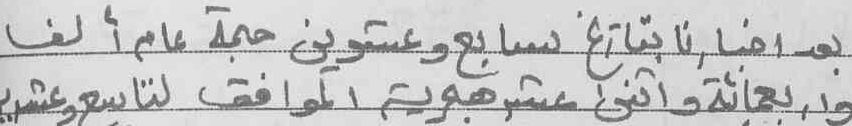 بعد اخبارنا بتاريخ سابع وعشرين حجة عام ألف
واربعمائة واثنى عشر هجرية الموافق لتاسع وعشرين